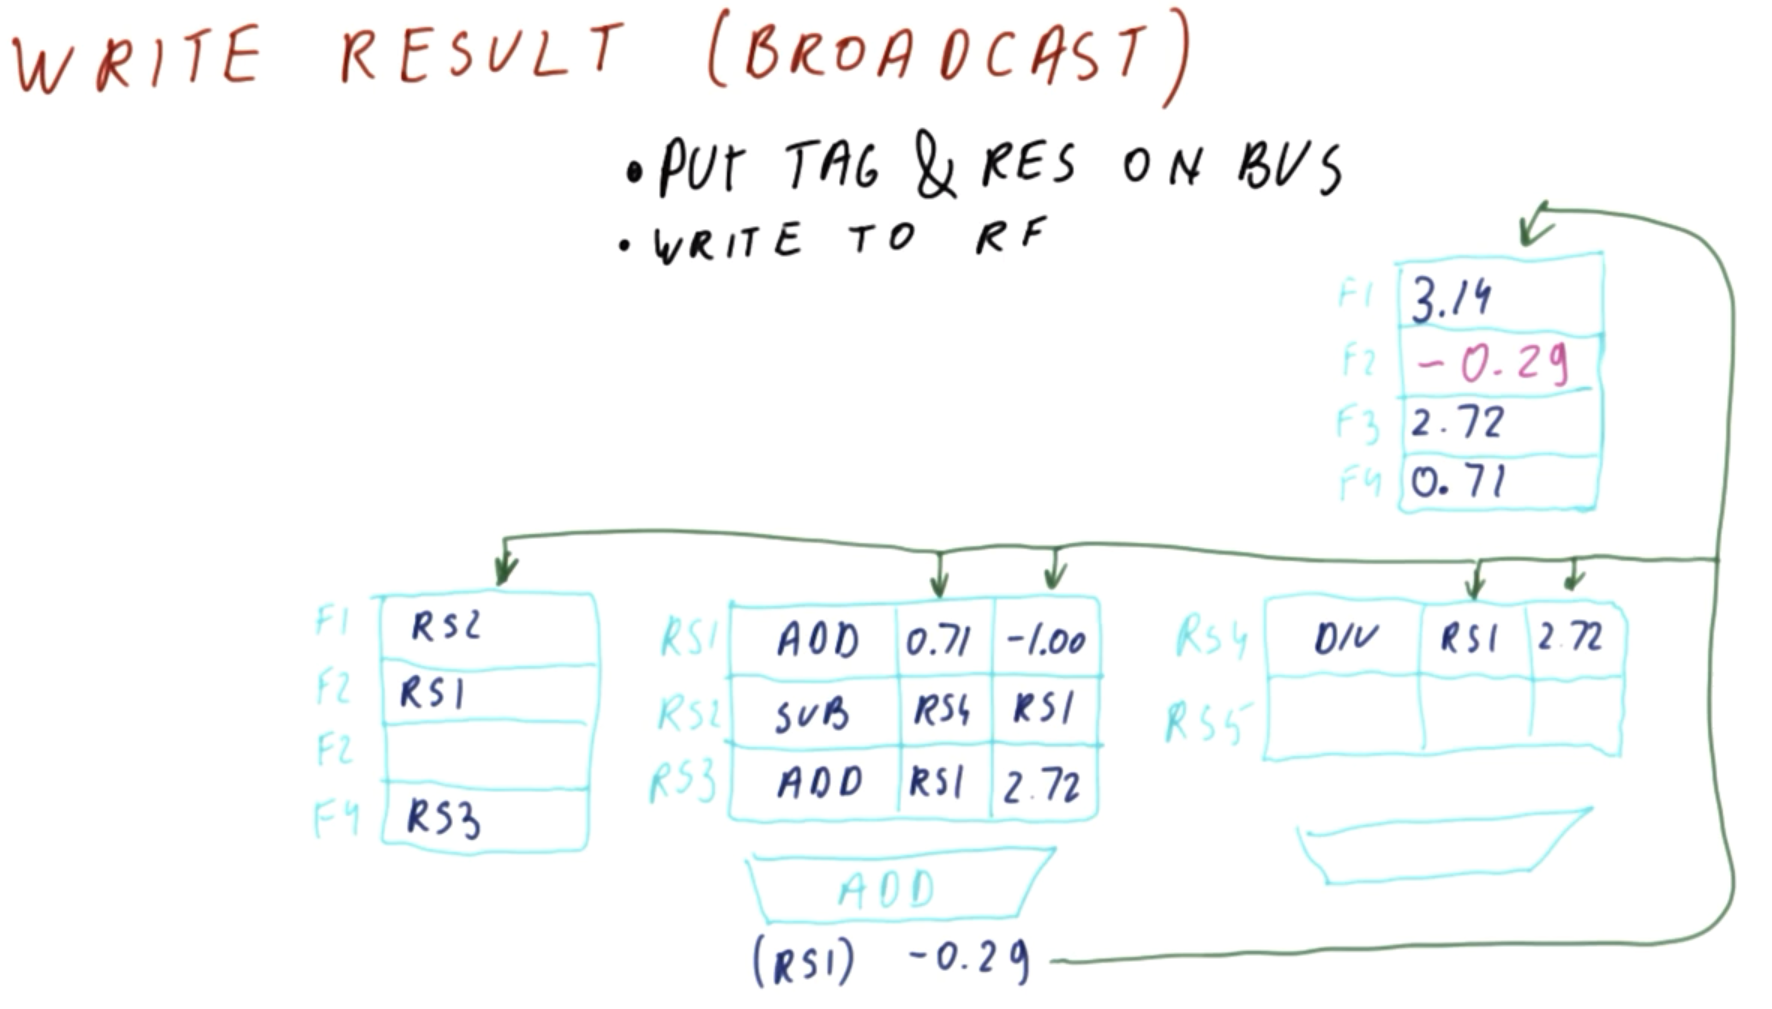 WRITE RESULT (BROADCAST)
• PUT TAG & RES ON BUS
• WRITE TO RF
F1 3.14
F2 -0.29
F3 2.72
F4 0.71
F1 RS2
F2 RS1
F2
F4 RS3
RS1 ADD 0.71 -1.00
RS2 SUB RS4 RS1
RS3 ADD RS1 2.72
ADD
(RS1) -0.29
RS4 DIV RS1 2.72
RS5